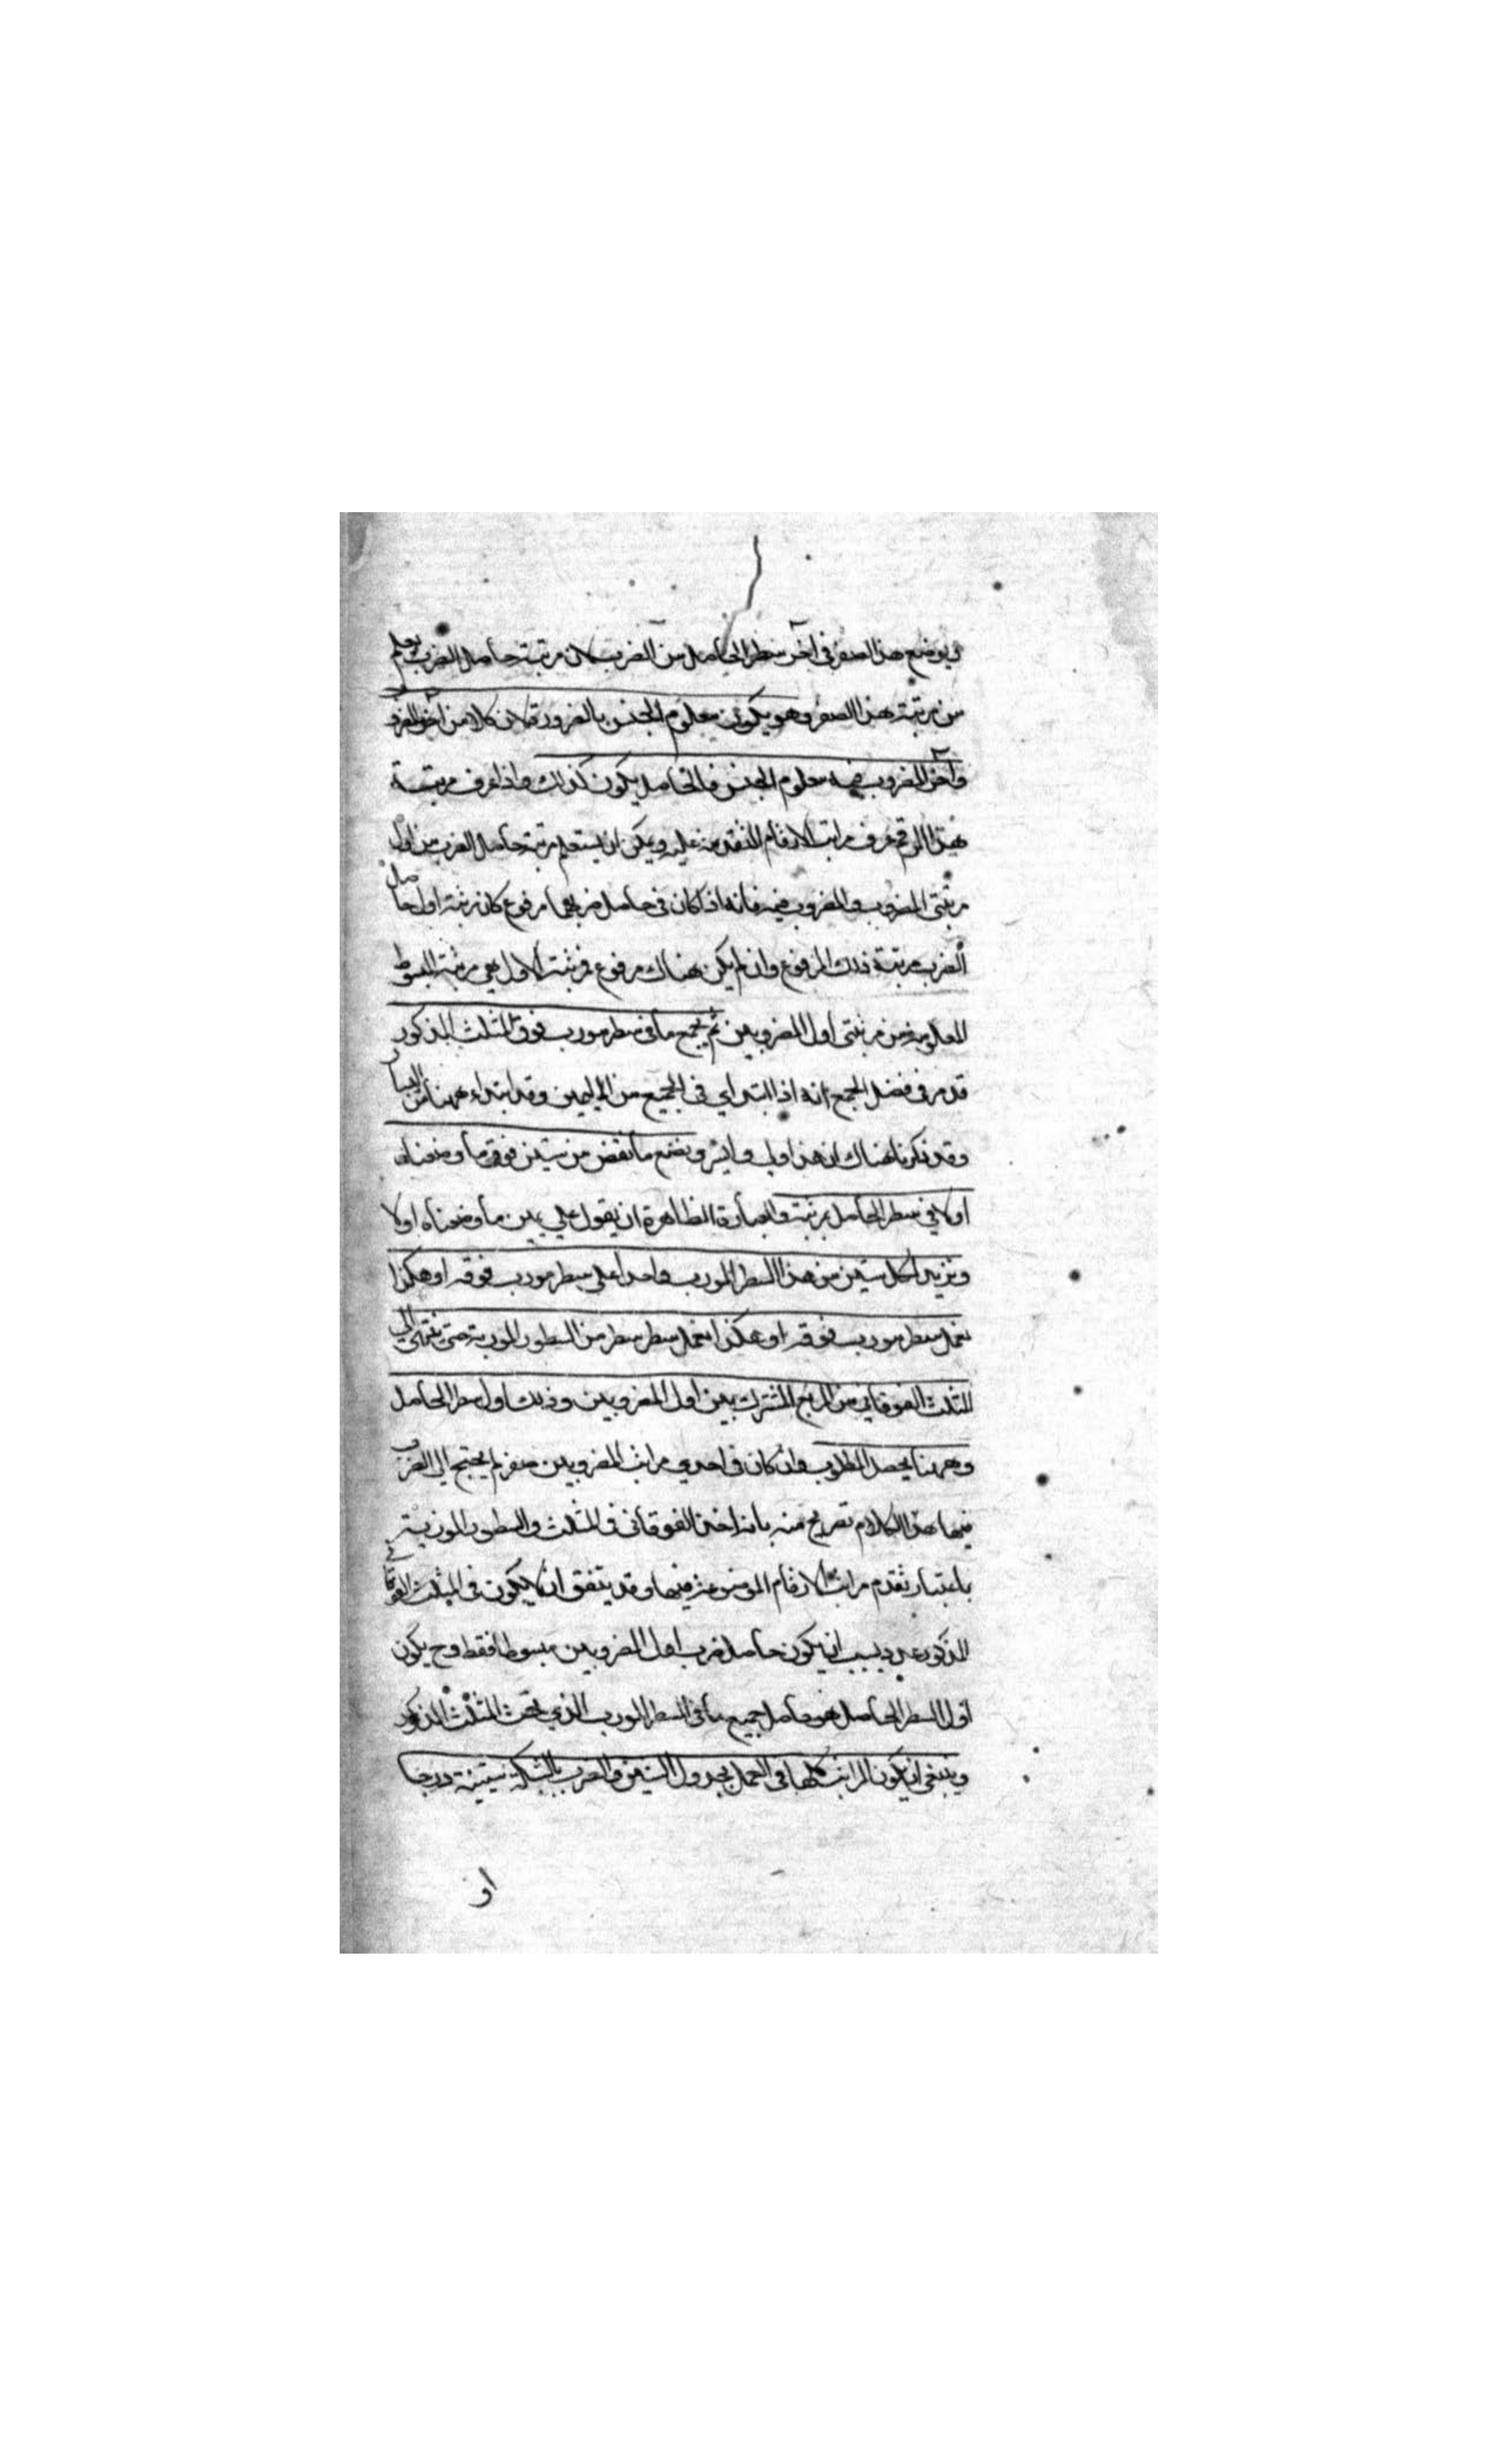 ان يوضع هذا الصفر في آخر سطر الحاصل من الضرب لان مرتبة حاصل الضرب يعلم
من مرتبة هذا الصفر وهو يكون معلوم الجنس بالضرورة لان كلا من آخر المضروب
وآخر المضروب فيه معلوم الجنس فالحاصل يكون كذلك واذا عرف مرتبة
هذا الرقم عرف مراتب الارقام المتقدمة عليه ويمكن ان يستعلم مرتبة حاصل الضرب من اول
مرتبتي المضروب والمضروب فيه فانه اذا كان في حاصل ضربهما مرفوع كان مرتبة اول حاصل
الضرب مرتبة ذلك المرفوع وان لم يكن هناك مرفوع فمرتبة الاول هي مرتبة المبسوط
المعلومة من مرتبتي اول المضروبين ثم يجمع ما في سطر مورب فوق المثلث المذكور
قد مر في فصل الجمع انه اذا ابتداي في الجميع من اليمين وقد ابتداء ههنا من اليسار
وقد ذكرنا هناك ان هذا اولي وايسر ويضع ما نقص من ستين فوق ما وضعناه
اولا في سطر الحاصل بمرتبة والعبارة الظاهرة ان يقول علي يمين ما وضعناه اولا
ونزيد لكل ستين من هذا السطر المورب واحدا علي سطر مورب فوقه او هكذا
نعمل سطر مورب فوقه او هكذا نعمل سطر سطر من السطور الموربة حتى ننتهي الي
المثلث الفوقاني من المربع المشترك بين اول المضروبين وذلك اول سطر الحاصل
وههنا يحصل المطلوب وان كان في احدي مراتب المضروبين صفر لم يحتج الي الضرب
فيها هذا الكلام تصريح منه بانه اخذ الفوقاني في المثلث والسطور الموربة
باعتبار تقدم مراتب الارقام الموضوعة فيها وقد يتفق ان لا يكون في المثلث الفوقاني
المذكور عدد بسبب ان يكون حاصل ضرب اول المضروبين مبسوطا فقط وح يكون
اول السطر الحاصل هو حاصل جميع ما في السطر المورب الذي تحت المثلث المذكور
وينبغي ان يكون المراتب كلها في العمل بجدول الستين والضرب بالشبكة ستينية درجا
او